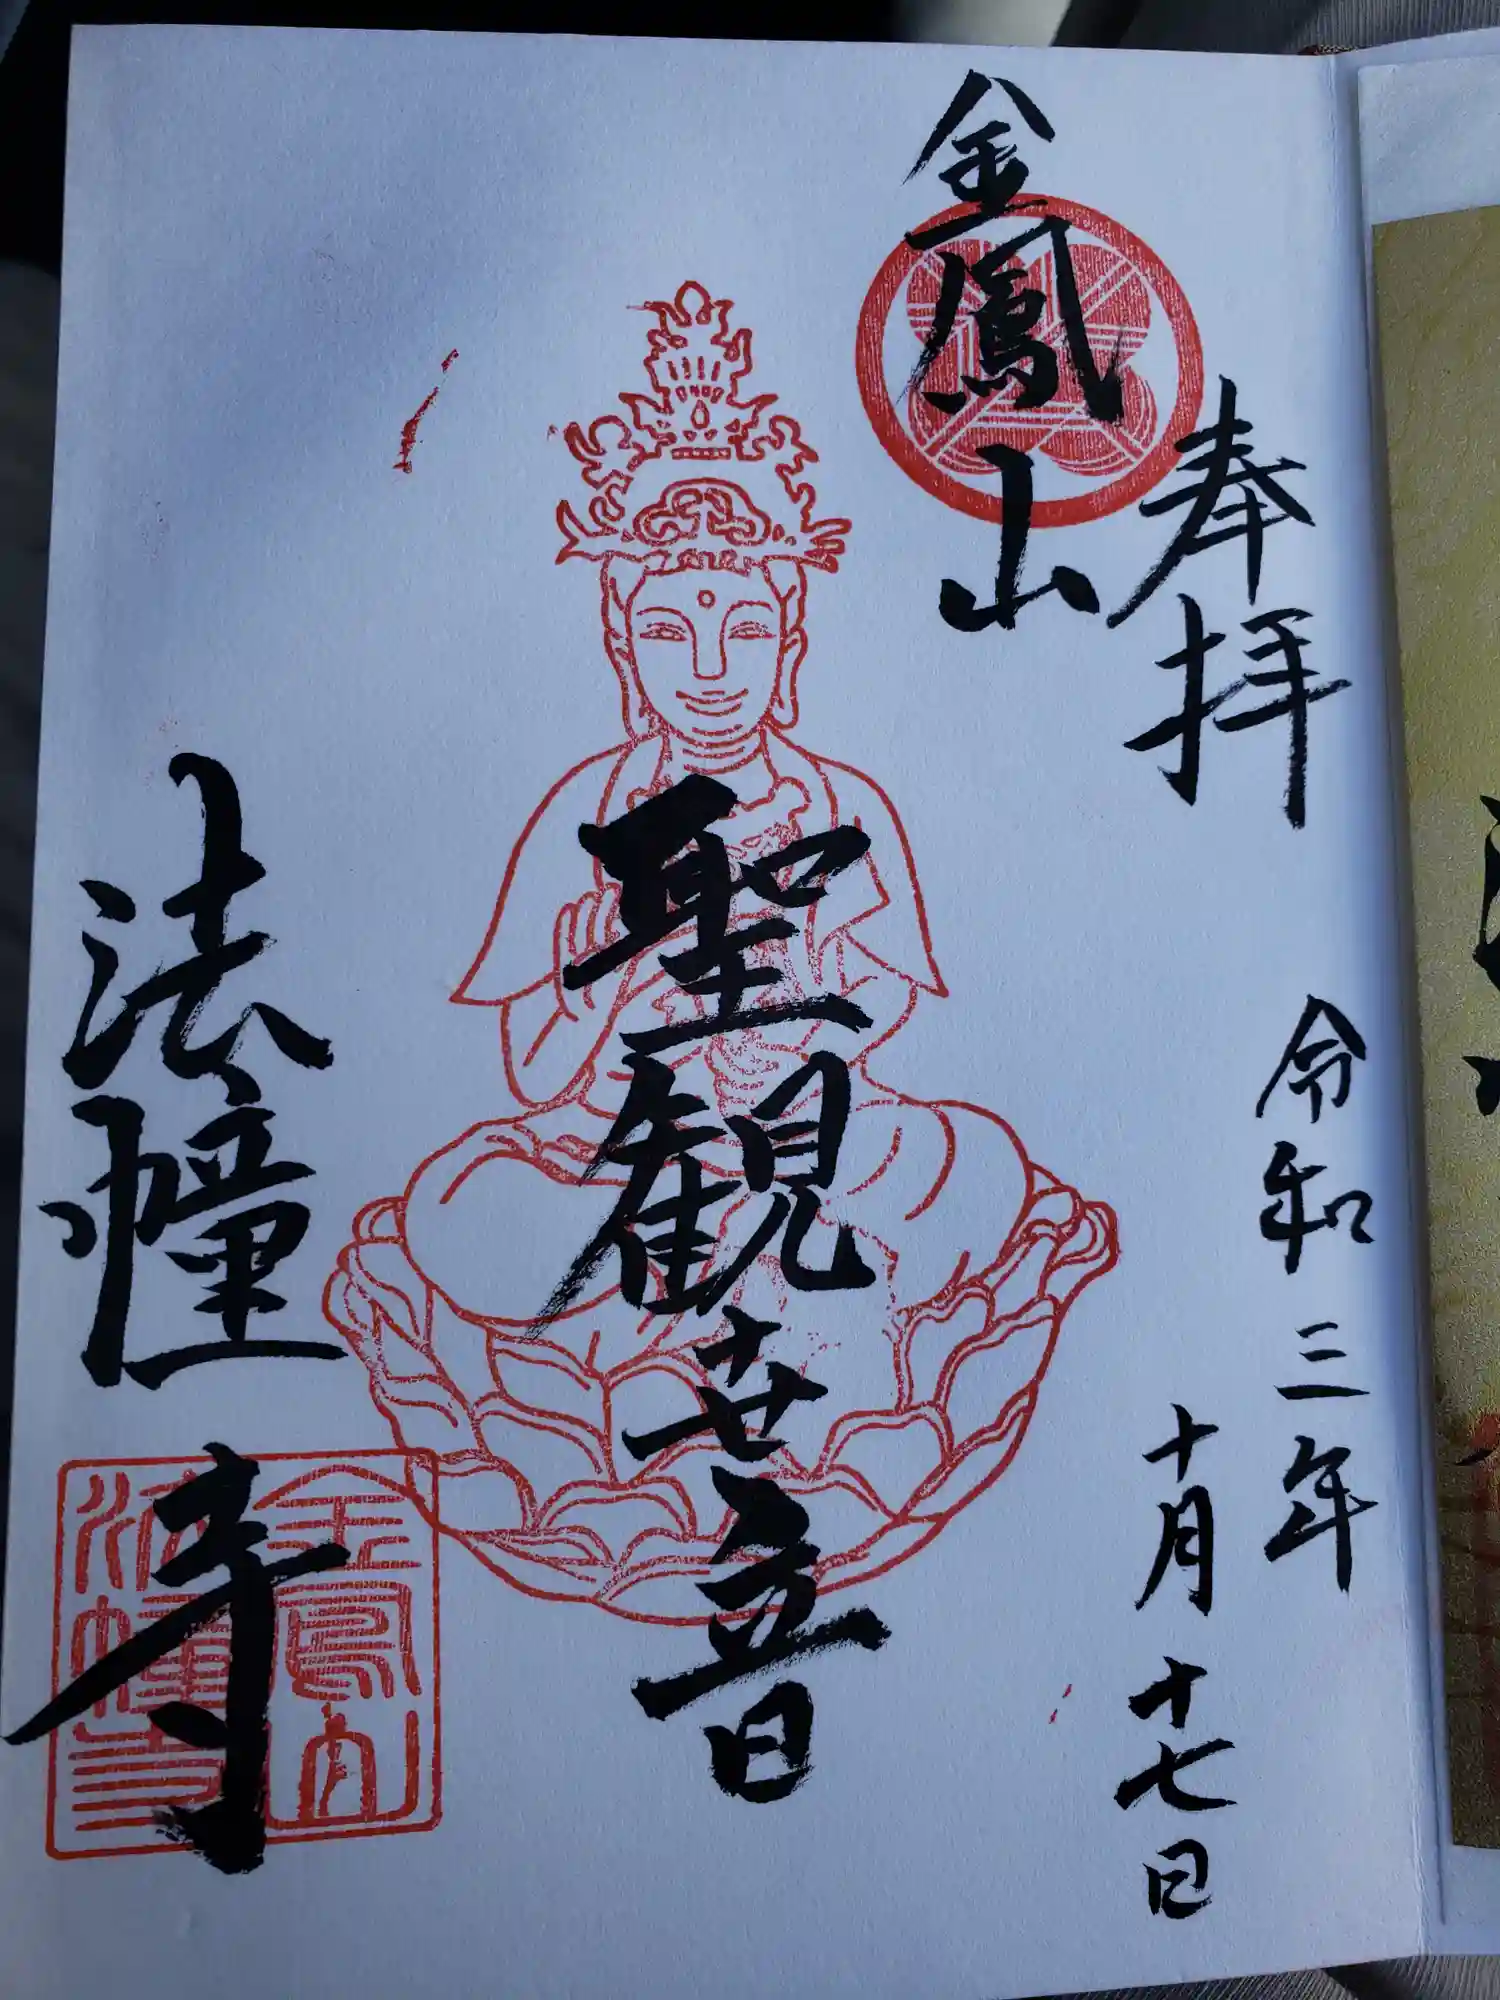 奉拝
令和三年
十月十七日
金鳳山
聖観世音
法幢寺
金鳳山
法幢寺